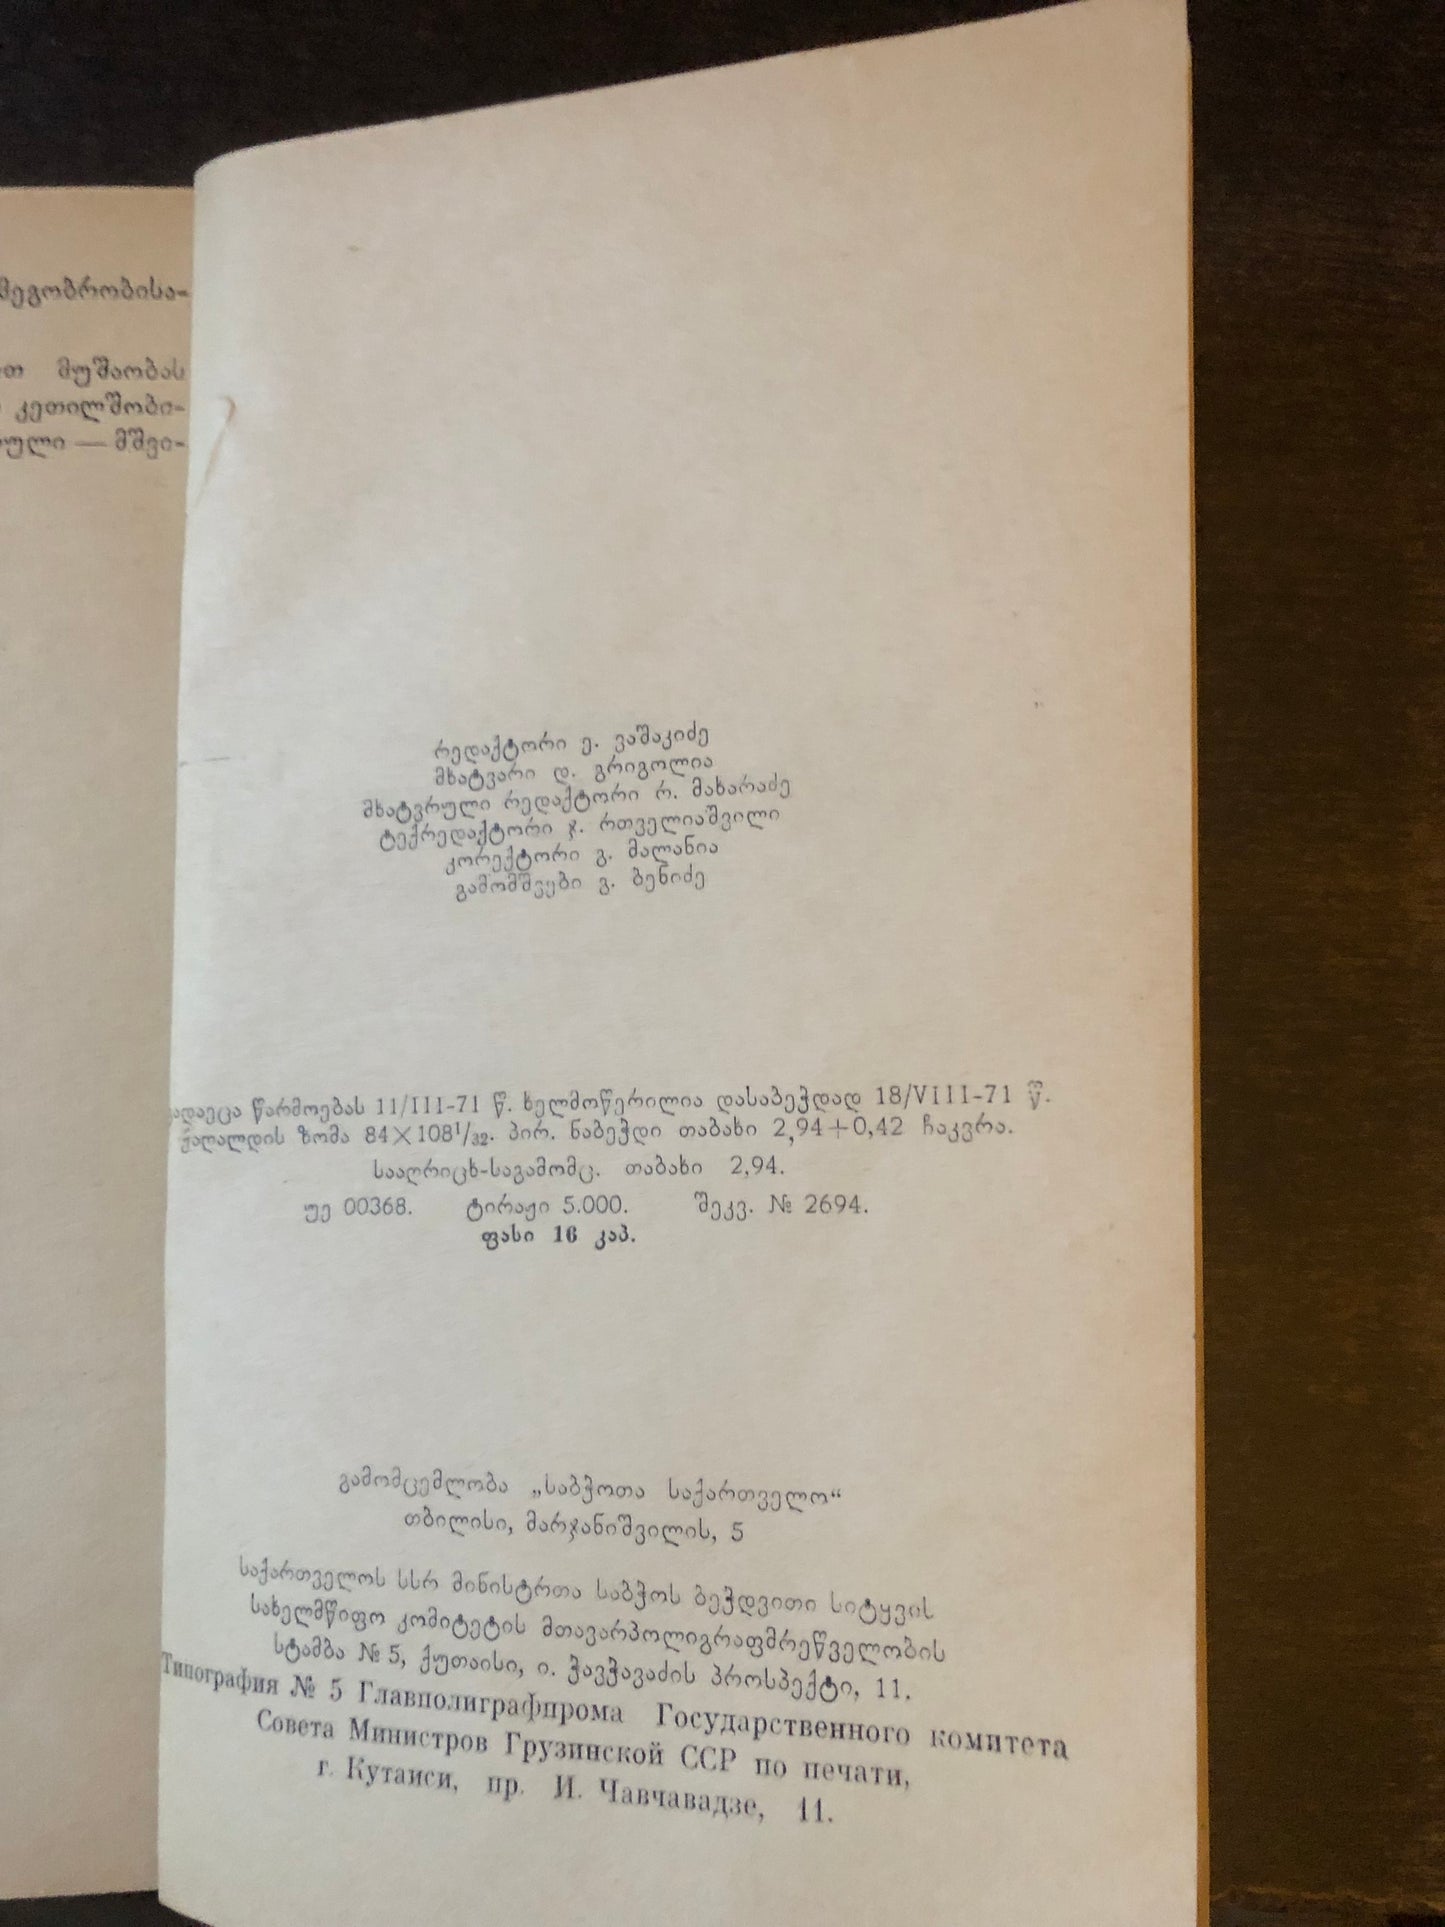 მეგობრობისა-
მუშაობას
კეთილშობი-
— მშვი-
რედაქტორი ე. ვაშაკიძე
მხატვარი დ. გრიგოლია
მხატვრული რედაქტორი რ. მახარაძე
ტექრედაქტორი ჯ. რთველიაშვილი
კორექტორი გ. მალანია
გამომშვები ვ. ბენიძე
გადაეცა წარმოებას 11/III-71 წ. ხელმოწერილია დასაბეჭდად 18/VIII-71 წ.
ქაღალდის ზომა 84×108¹/₃₂. პირ. ნაბეჭდი თაბახი 2,94+0,42 ჩაკვრა.
სააღრიცხ-საგამომც. თაბახი 2,94.
უე 00368. ტირაჟი 5.000. შეკვ. № 2694.
ფასი 16 კაპ.
გამომცემლობა „საბჭოთა საქართველო“
თბილისი, მარჯანიშვილის, 5
საქართველოს სსრ მინისტრთა საბჭოს ბეჭდვითი სიტყვის
სახელმწიფო კომიტეტის მთავარპოლიგრაფმრეწველობის
სტამბა № 5, ქუთაისი, ი. ჭავჭავაძის პროსპექტი, 11.
Типография № 5 Главполиграфпрома Государственного комитета
Совета Министров Грузинской ССР по печати,
г. Кутаиси, пр. И. Чавчавадзе, 11.